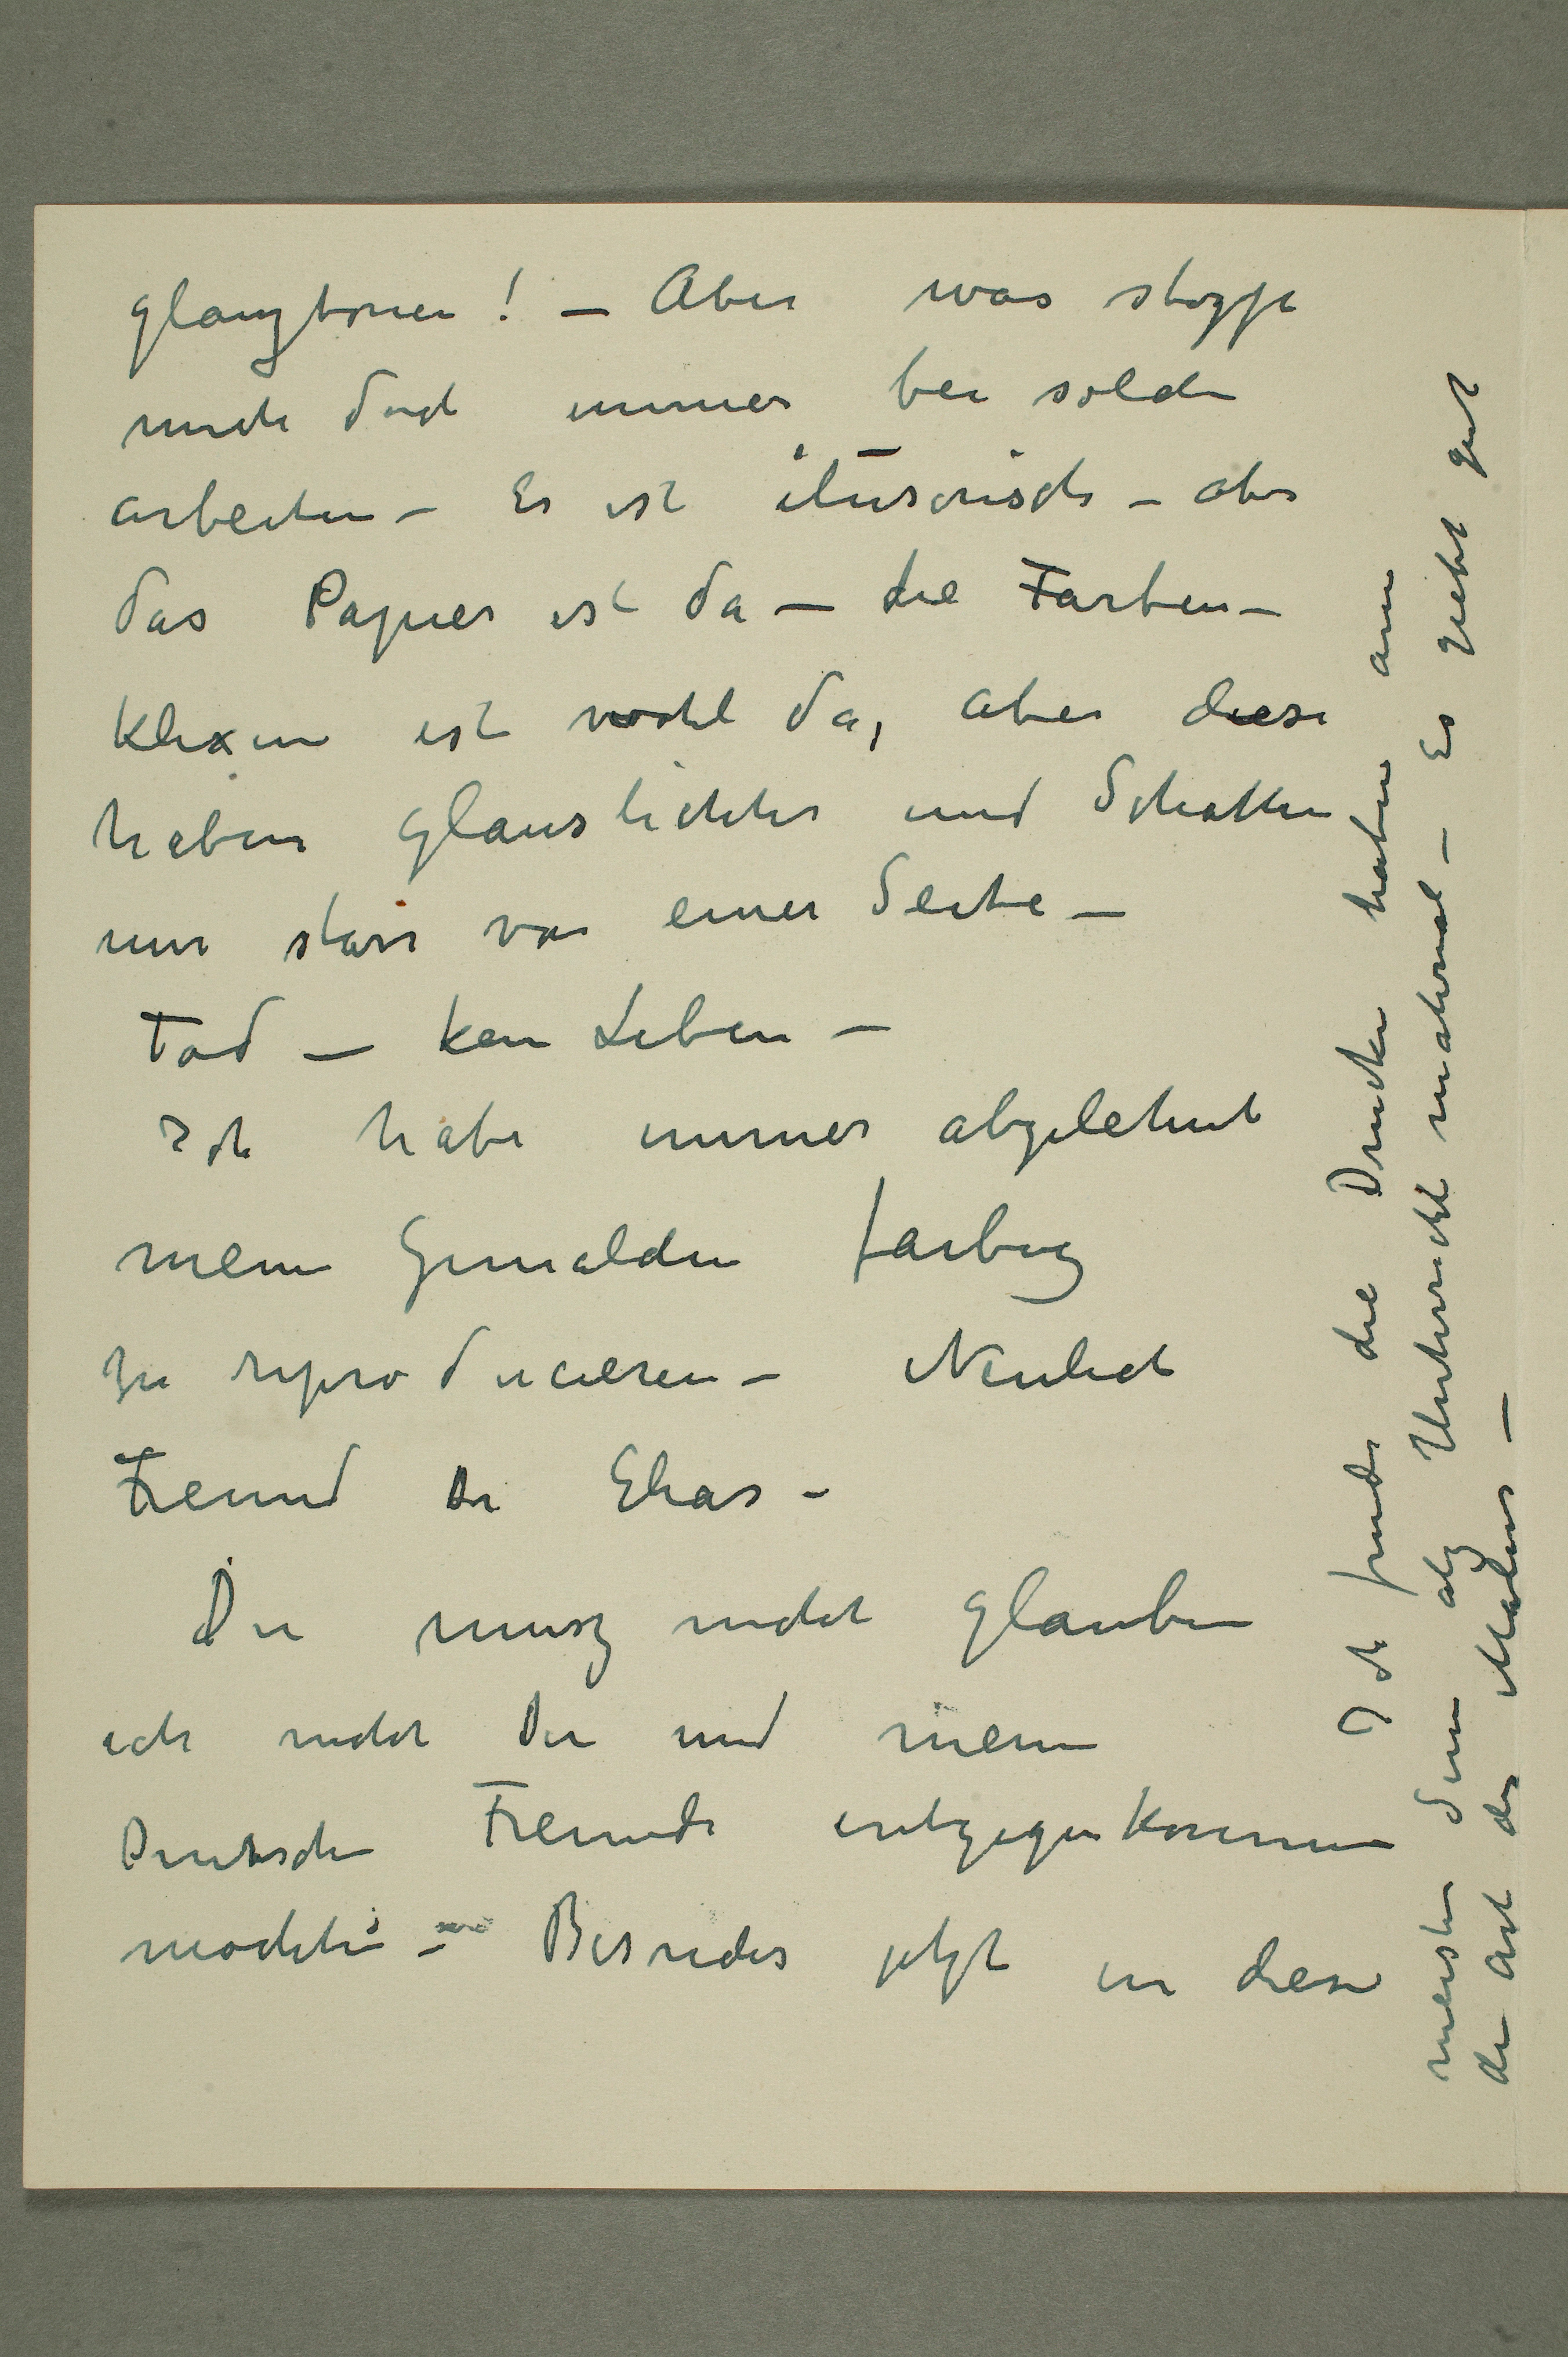 glanztonen! – Aber was stoppt
mich doch immer bei solche
arbeiten – Es ist ilusorisch – aber
das Papier ist da – die Farben –
klexen ist wohl da, aber diese
haben Glanslichter und Schatten
nur starr von einer Seite –
Tod – kein Leben –
Ich habe immer abgelehnt
meine Gemälden farbig
zu reproducieren – Neulich
Freund Dr Elias –
Du musz nicht glauben
ich nicht Du und meine
Deutsche Freunde entgegenkommen
möchte – Besonders jetzt in diese
Ich finde die Drucke haben am
meisten Sinn alz Unterricht material – Es giebt gut
die Art des Malens –